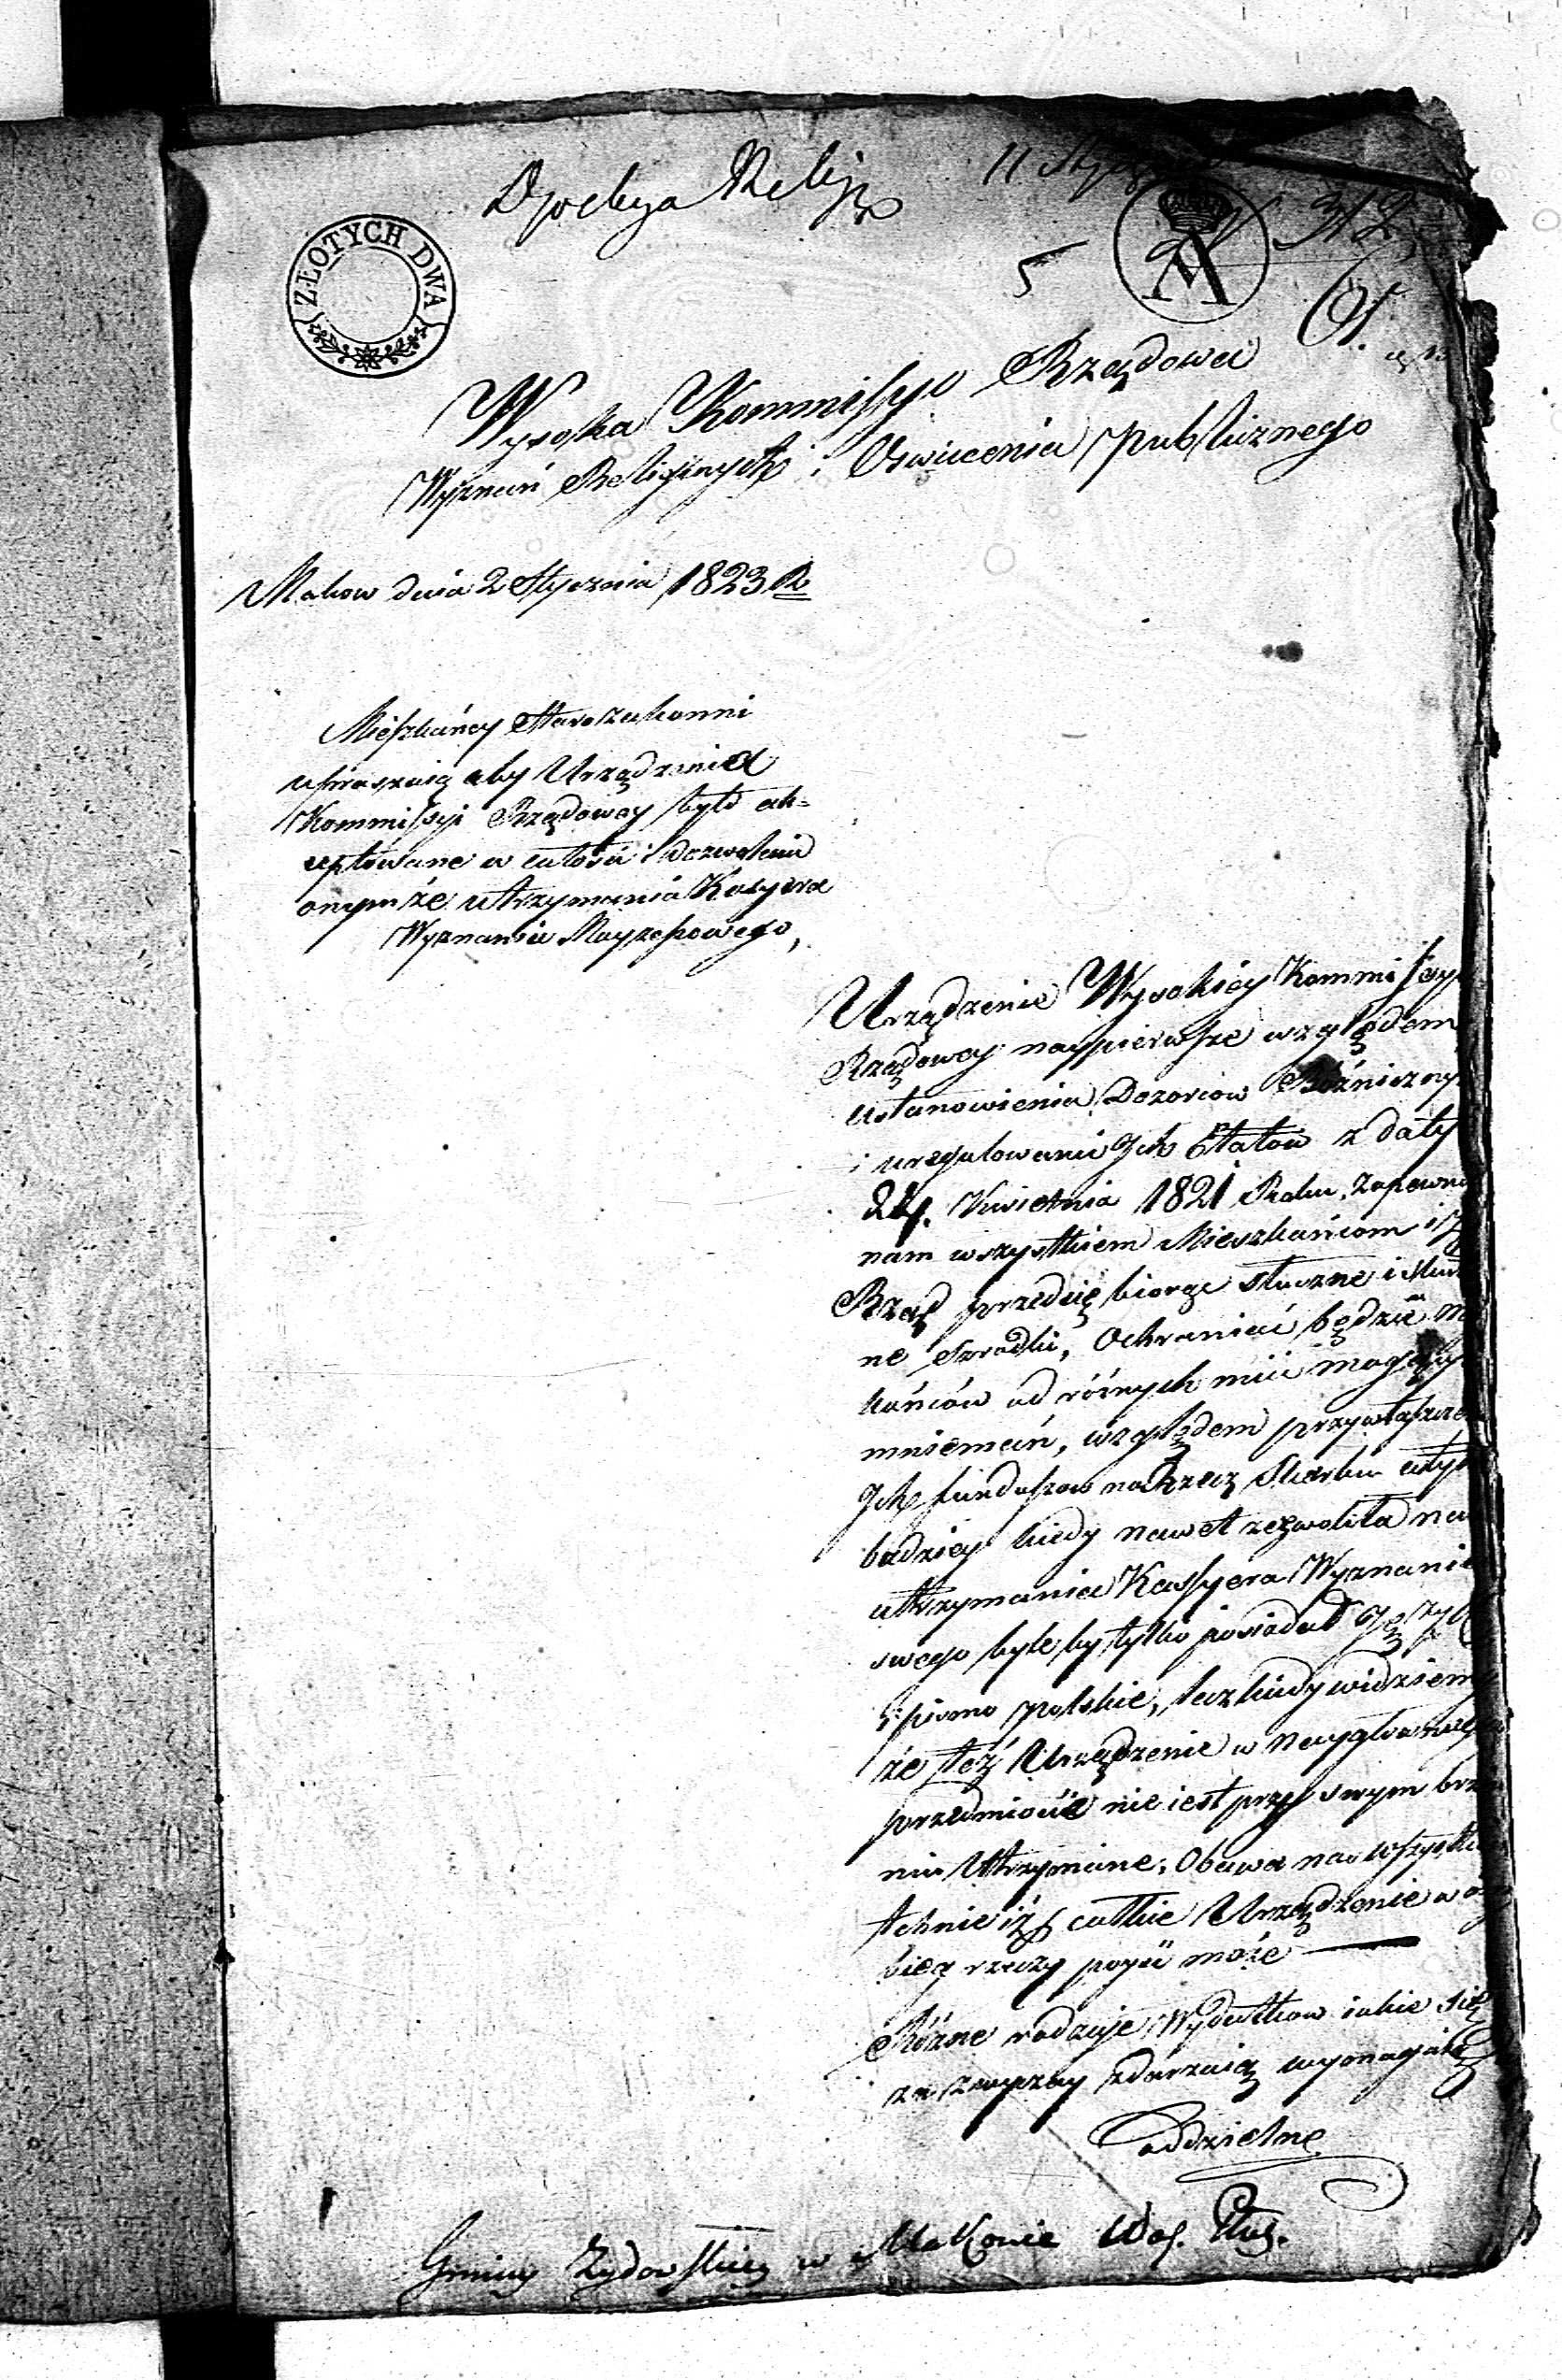 11 Stycz
312
5
ZŁOTYCH DWA
A
Wysoka Kommissyo Rządowa
Wyznań Religijnych i Oswiecenia publicznego
Makow dnia 2 Stycznia 1823 R
Mieszkańcy Starozakonni
upraszaią aby Urządzenia
Kommissyi Rządowey było ak=
ceptowane w całosci i dozwolenia
onymże utrzymania Kasyera
Wyznania Moyzeszowego,
Urządzenie Wysokiéy Kommissyi
Rządowey naypierwsze względem
ustanowienia Dozorców Bóżnicznyc
i uregulowania Jch Etatów z daty
24. Kwietnia 1821 Roku, Zapewni
nam wszystkiem Mieszkańcom iż
Rząd przedsię biorąc słuszne i skut
ne szrodki, Ochraniać będzie m
kańców od różnych mieć mogący
mniemań, względem przywłaszcze
Jch funduszow na Rzecz Skarbu
bardziey kiedy nawet zezwoliła na
utrzymania Kassyera Wyznania
swego byle by tylko posiadał Język
i pismo polskie, lecz kiedy widziemy
że też Urządzenie w nayglownieyszym
przedmiocie nie iest przy swym brzmi
niu Utrzymane, Obawa nas wszystkich
tchnie iż całkie Urządzenie w
bieg rzeczy poyść może
Różne rodzaje Wydatkow iakie się
za zwyczay zdarzaią wymagaią
oddzielne
Gminy Zydowskiey w Makowie Woj. Płoc.